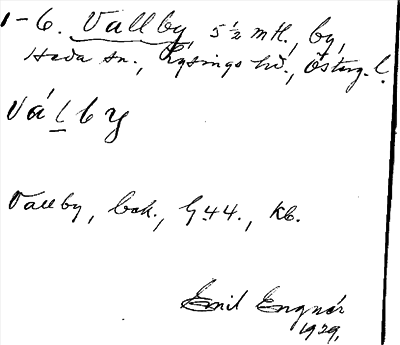 1-6. Vallby, 5 ½ mtl., by,
Heda sn., Lysings hd., Österg. l.
válby
Vallby, bok., G44., Kb.
Emil Engnér
1929.